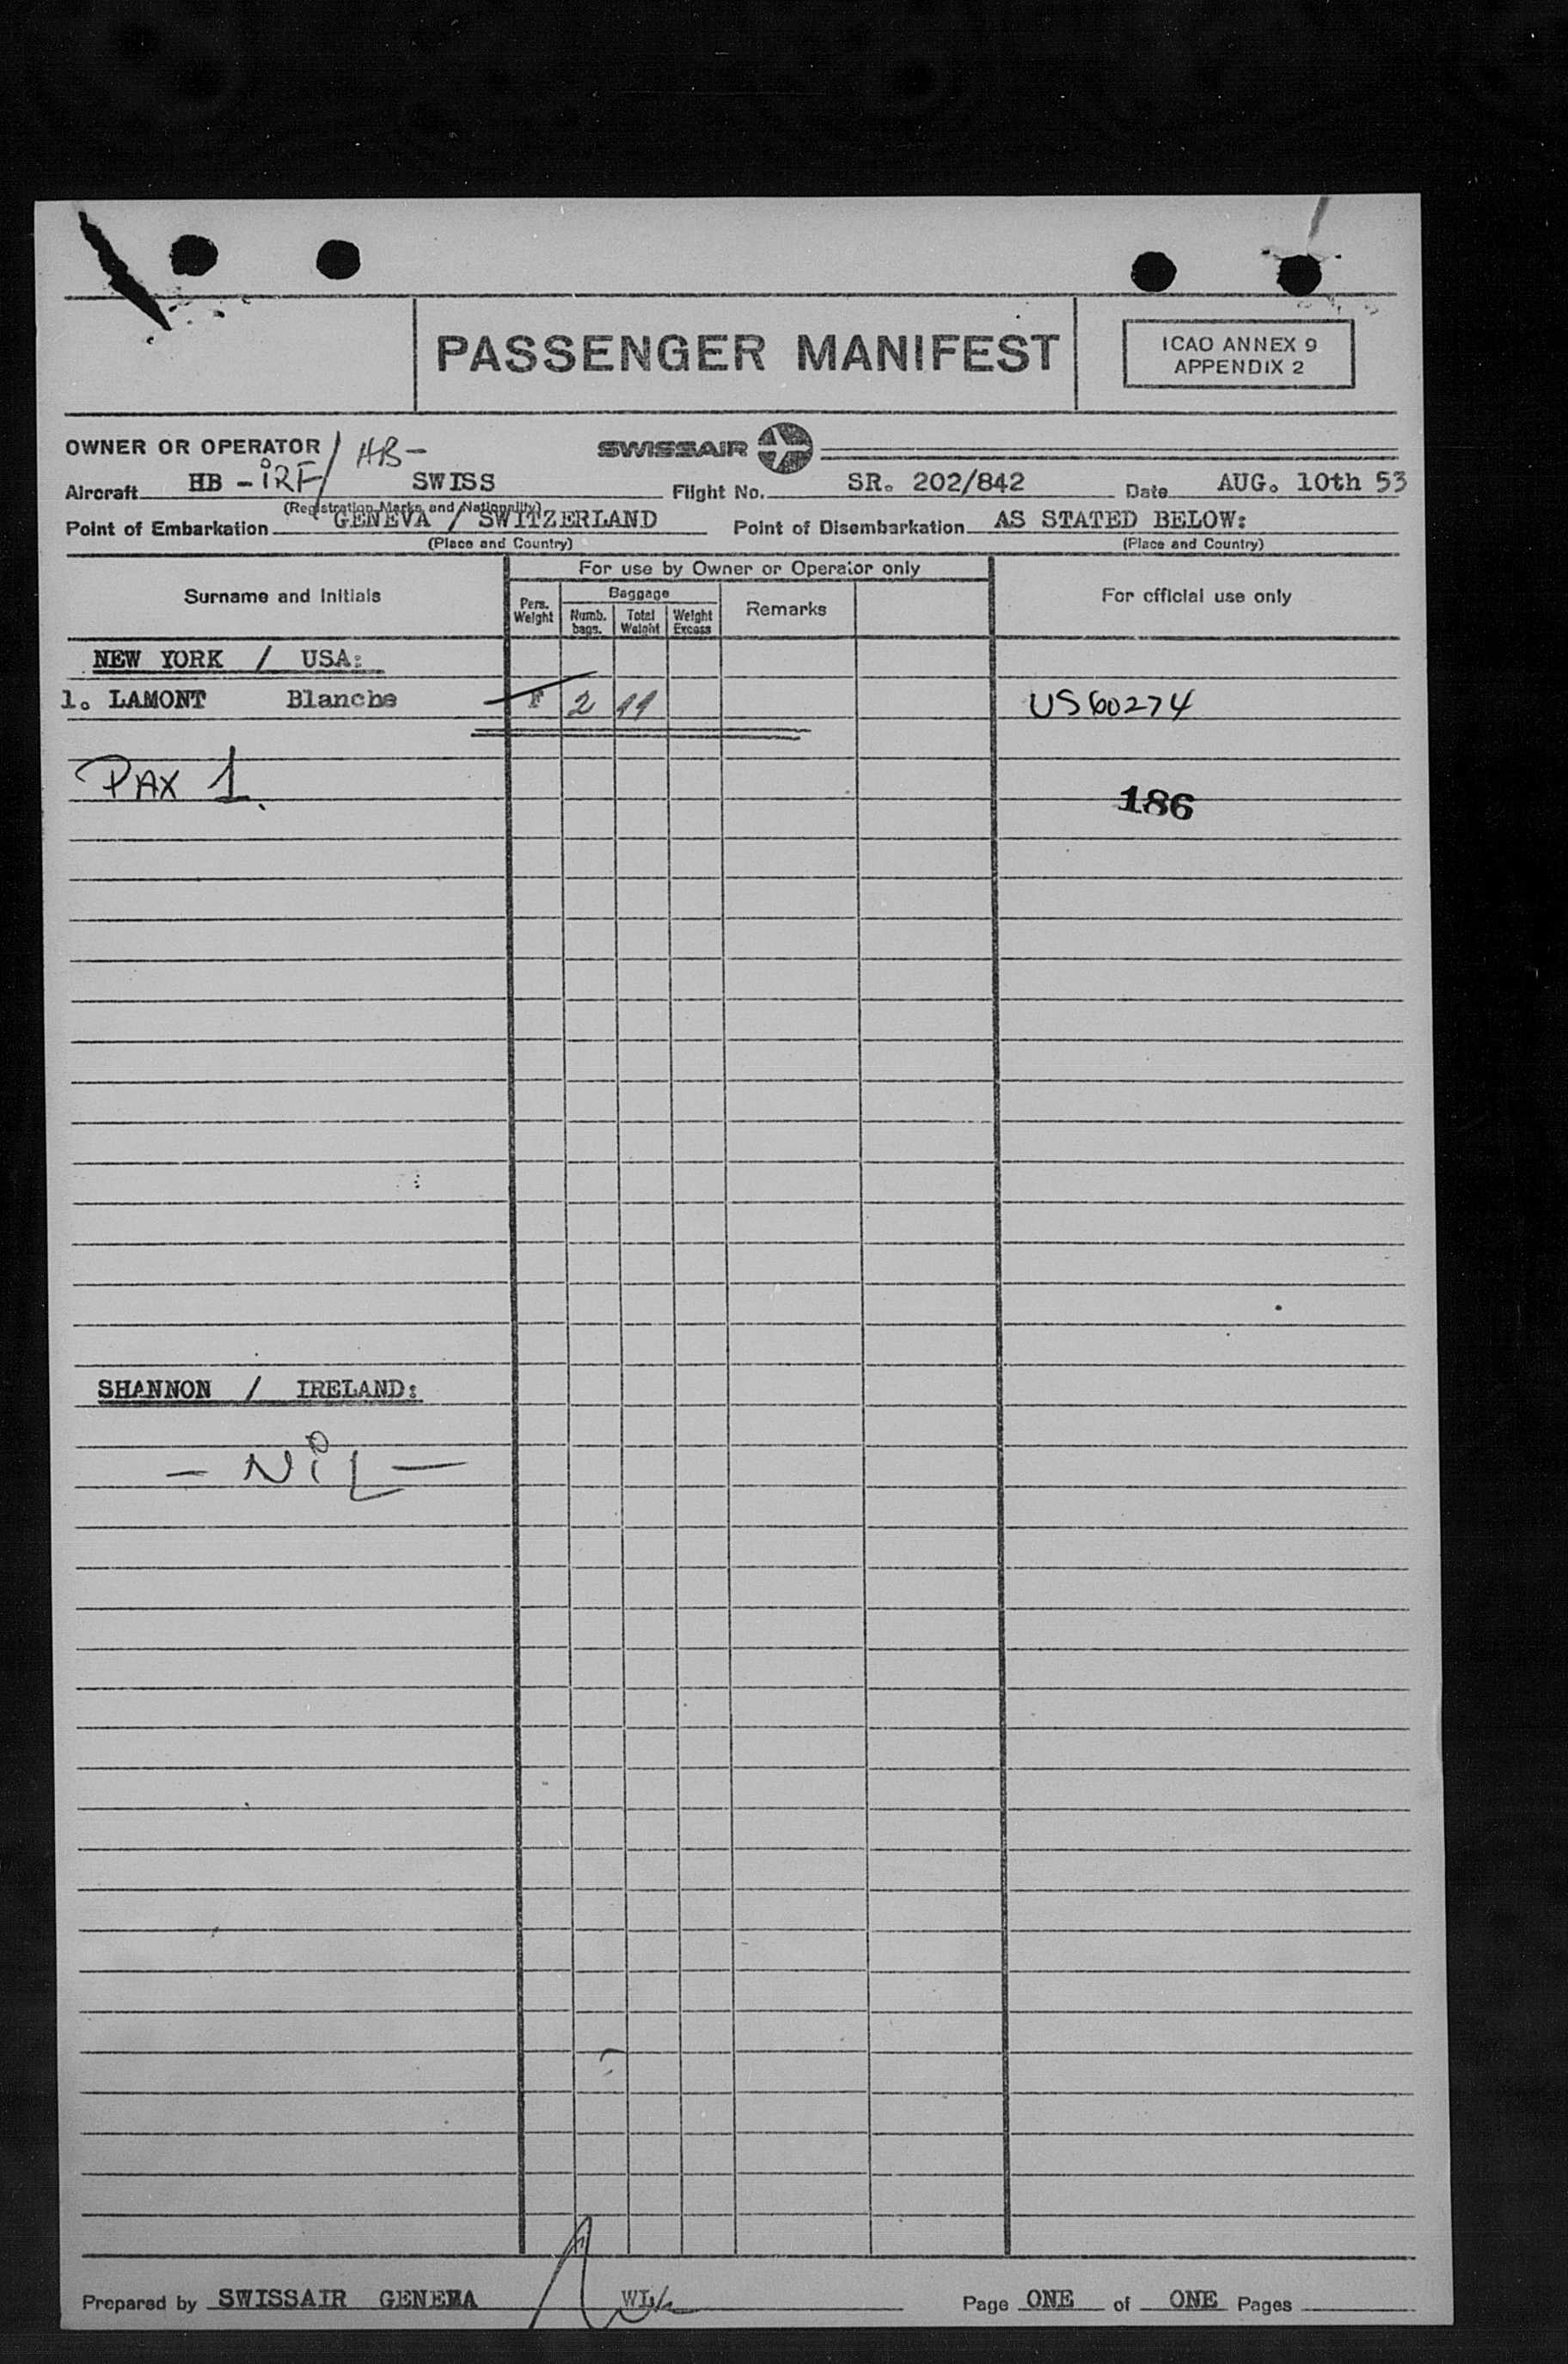 PASSENGER MANIFEST
ICAO ANNEX 9
APPENDIX 2
OWNER OR OPERATOR
SWISSAIR
Aircraft HB - iRF / HB- SWISS Flight No. SR. 202/842 Date AUG. 10th 53
(Registration Marks and Nationality)
Point of Embarkation GENEVA / SWITZERLAND Point of Disembarkation AS STATED BELOW:
(Place and Country) (Place and Country)
For use by Owner or Operator only
Surname and Initials Pers. Weight Baggage Numb. bags. Total Weight Weight Excess Remarks For official use only
NEW YORK / USA:
1. LAMONT Blanche F 2 11 US60274
PAX 1.
186
SHANNON / IRELAND:
- NiL -
Prepared by SWISSAIR GENEVA WL Page ONE of ONE Pages